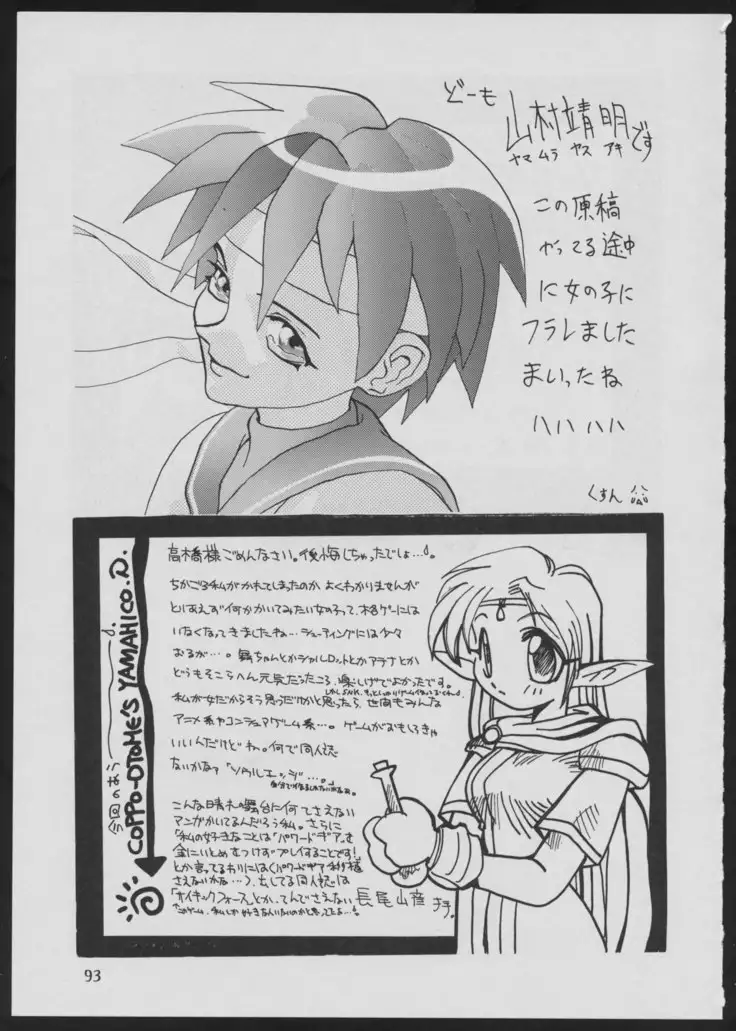 どーも
山村靖明です
ヤマムラ ヤス アキ
この原稿
やってる途中
に女の子に
フラレました
まいったね
ハハ ハハ
くすん
今回のおう
COPPO-OTOME'S YAMAHICO.D.
高橋様ごめんなさい。後悔しちゃったでしょ…。
ちかごろ私がかれてしまったのか よくわかりませんが
とりあえず何かかいてみたい女の子って、格ゲーには
いなくなってきましたね…シューティングには少々
おるが…。舞ちゃんとかシャルロットとかアテナとか
どうもそこらへん元気だったころ、楽しげでよかったです。
私が女だからそう思うだけかと思ったら、世間もみんな
アニメ系やコンシュマゲーム系…。ゲームがおもしろきゃ
いいんだけどね。何で同人誌
ないかなァ「ソウルエッジ…。」
こんな晴れの舞台に何でさえない
マンガかいてるんだろう私。さらに
「私の好きなことは「パワードギア」を
金にいとめをつけずプレイすることです!」
とか言ってるわりには(パワードギア
さえないかな…)、出してる同人誌は
「サイキックフォース」とか、てんでさえない
長尾山彦
93